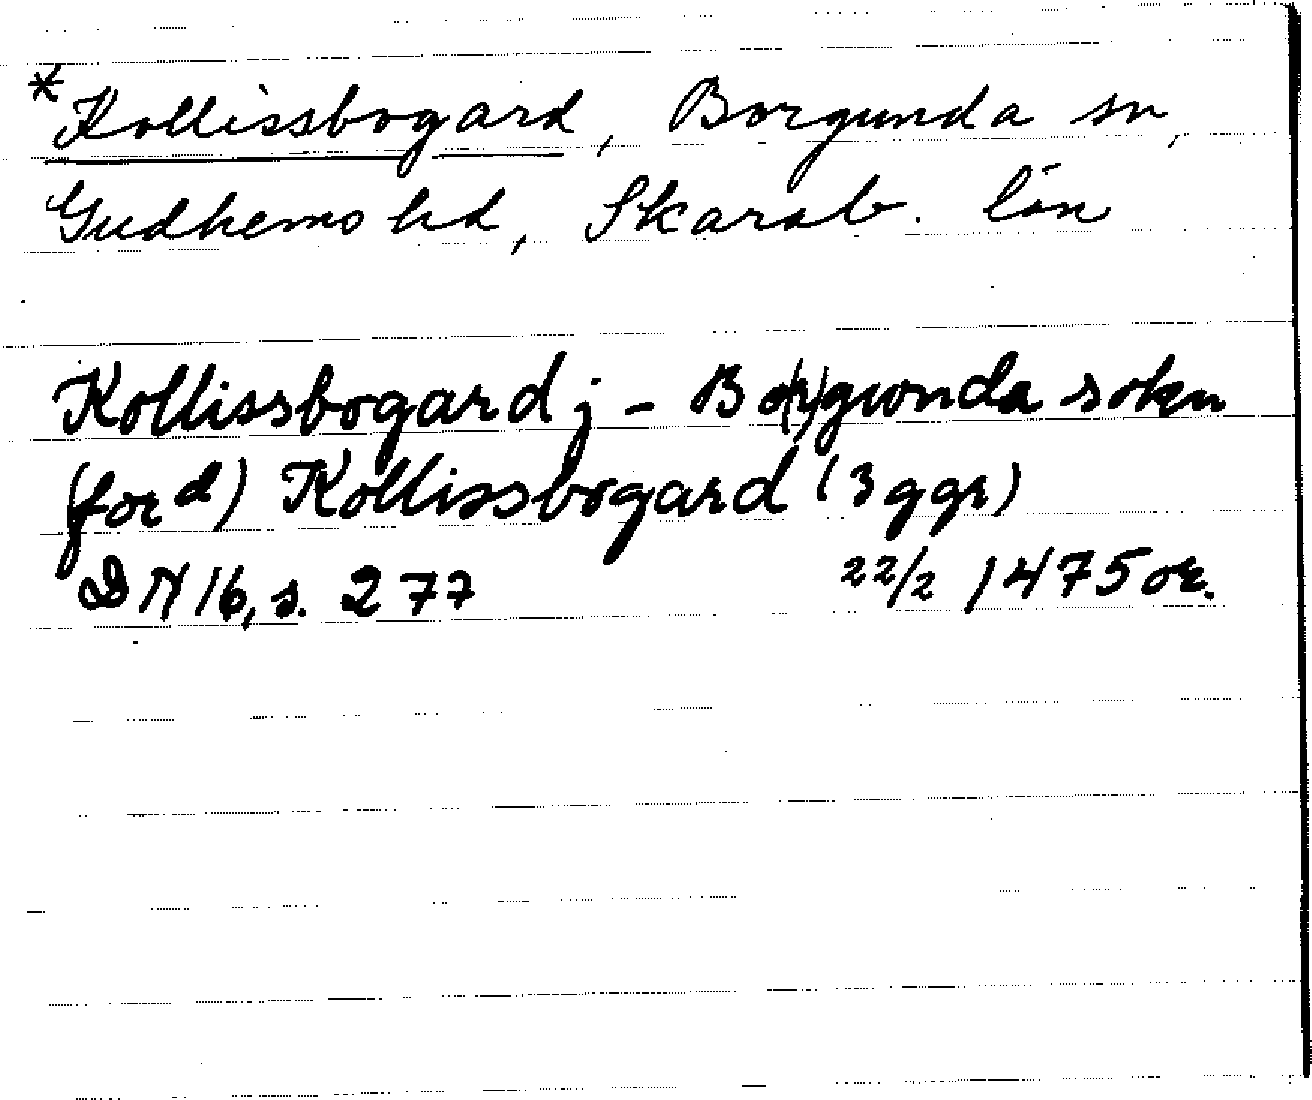 *Kollissbogard, Borgunda sn,
Gudhems hd, Skarab. län
Kollissbogard j - Bo(r)gwnda sokn
(for d) Kollissbogard (3 ggr)
DN 16, s. 277 22/2 1475 or.